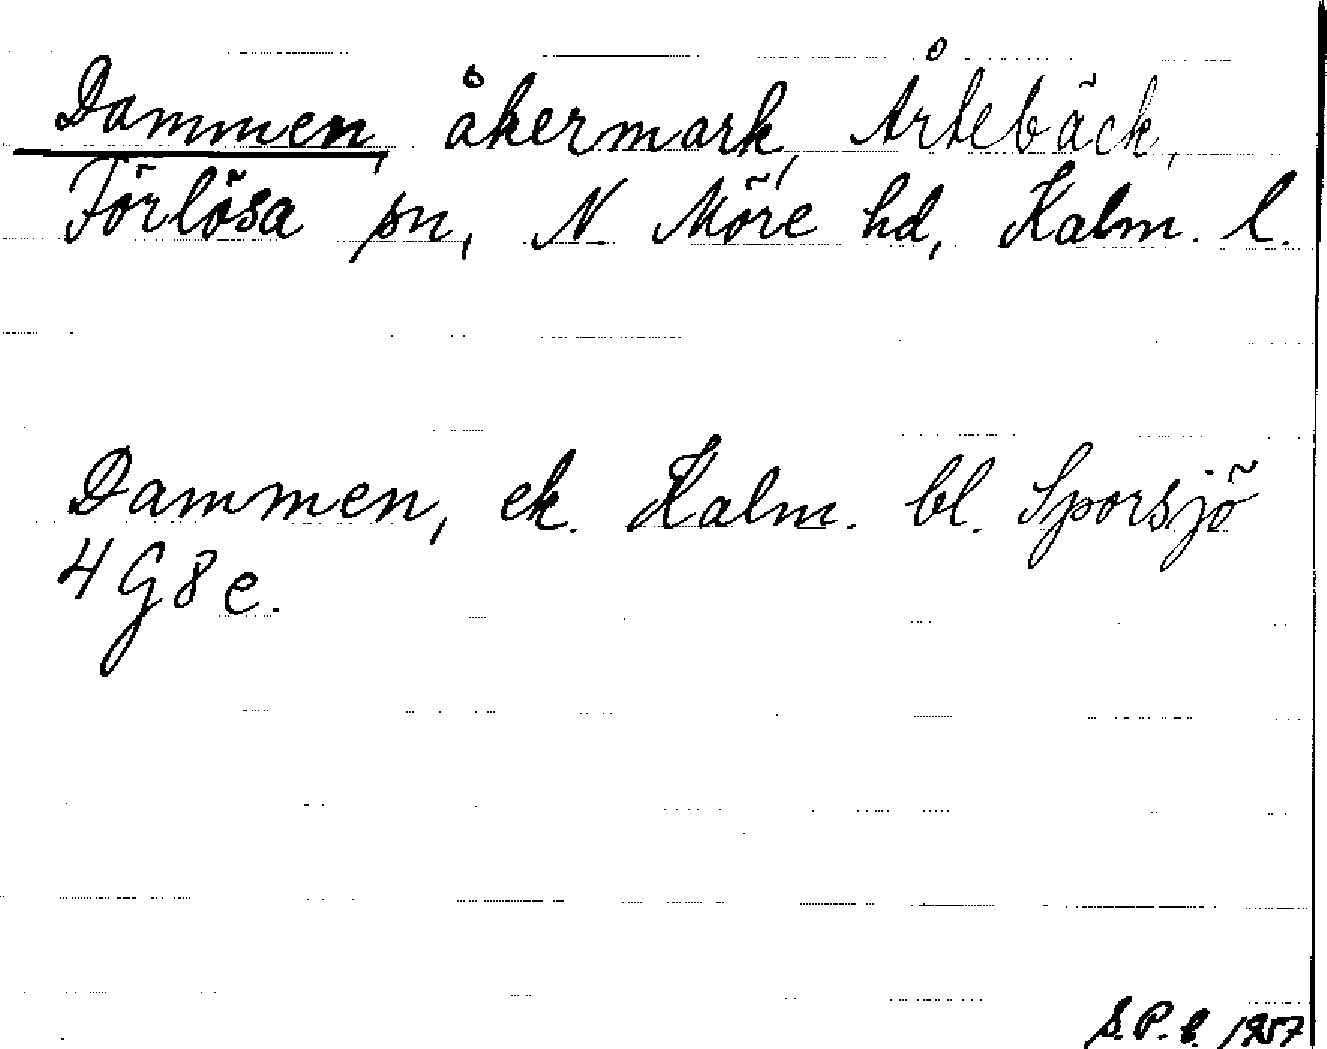 Dammen, åkermark, Årtebäck,
Förlösa sn, N. Möre hd, Kalm. l.
Dammen, ek. Kalm. bl. Sporsjö
4G8e.
S.P.b. 1957